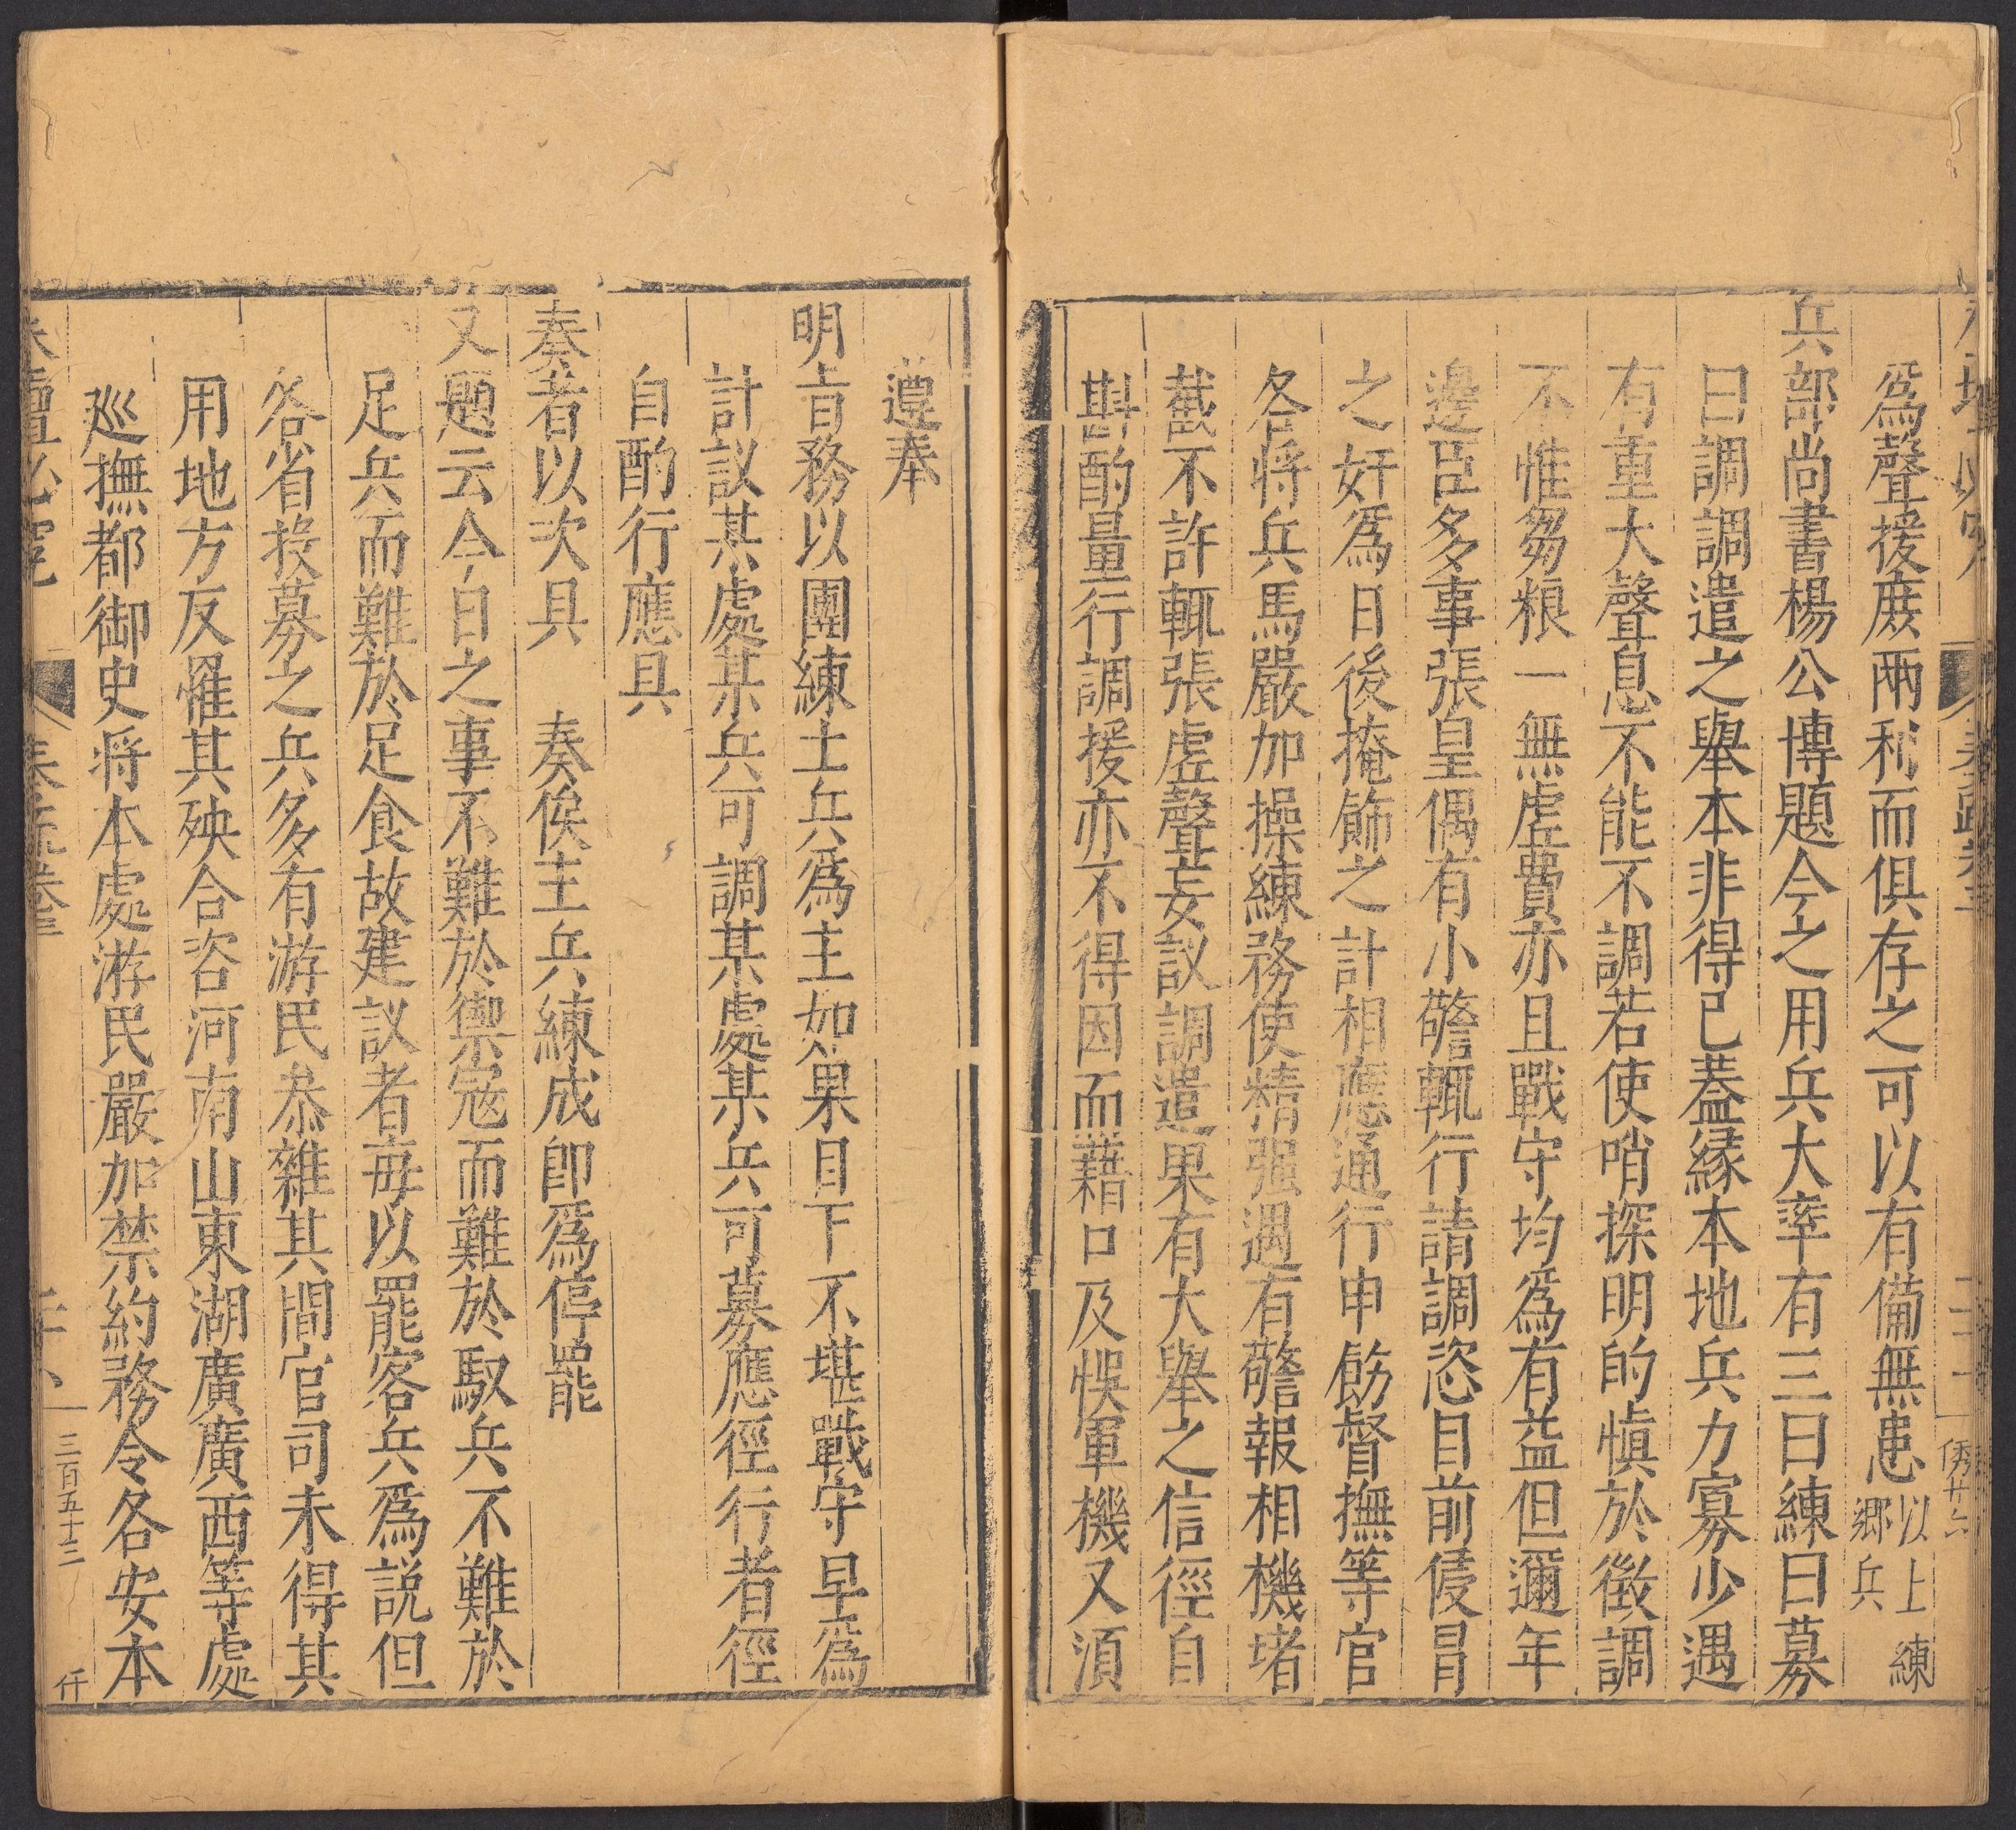 爲聲援庶兩利而俱存之可以有備無患以上練鄉兵
兵部尚書楊公博題今之用兵大率有三曰練曰募
曰調調遣之舉本非得已蓋緣本地兵力寡少遇
有重大聲息不能不調若使哨探明的慎於徵調
不惟芻粮一無虛費亦且戰守均爲有益但邇年
邊臣多事張皇偶有小警輒行請調恣目前侵冒
之奸爲日後掩飾之計相應通行申飭督撫等官
各將兵馬嚴加操練務使精强遇有警報相機堵
截不許輒張虛聲妄議調遣果有大舉之信徑自
斟酌量行調援亦不得因而藉口及悞軍機又須
遵奉
明旨務以團練土兵爲主如果目下不堪戰守早爲
計議某處某兵可調某處某兵可募應徑行者徑
自酌行應具
奏者以次具　奏俟主兵練成卽爲停罷
又題云今日之事不難於禦寇而難於馭兵不難於
足兵而難於足食故建議者每以罷客兵爲說但
各省投募之兵多有游民叅雜其間官司未得其
用地方反罹其殃合咨河南山東湖廣廣西等處
巡撫都御史將本處游民嚴加禁約務令各安本
三百五十三
仟